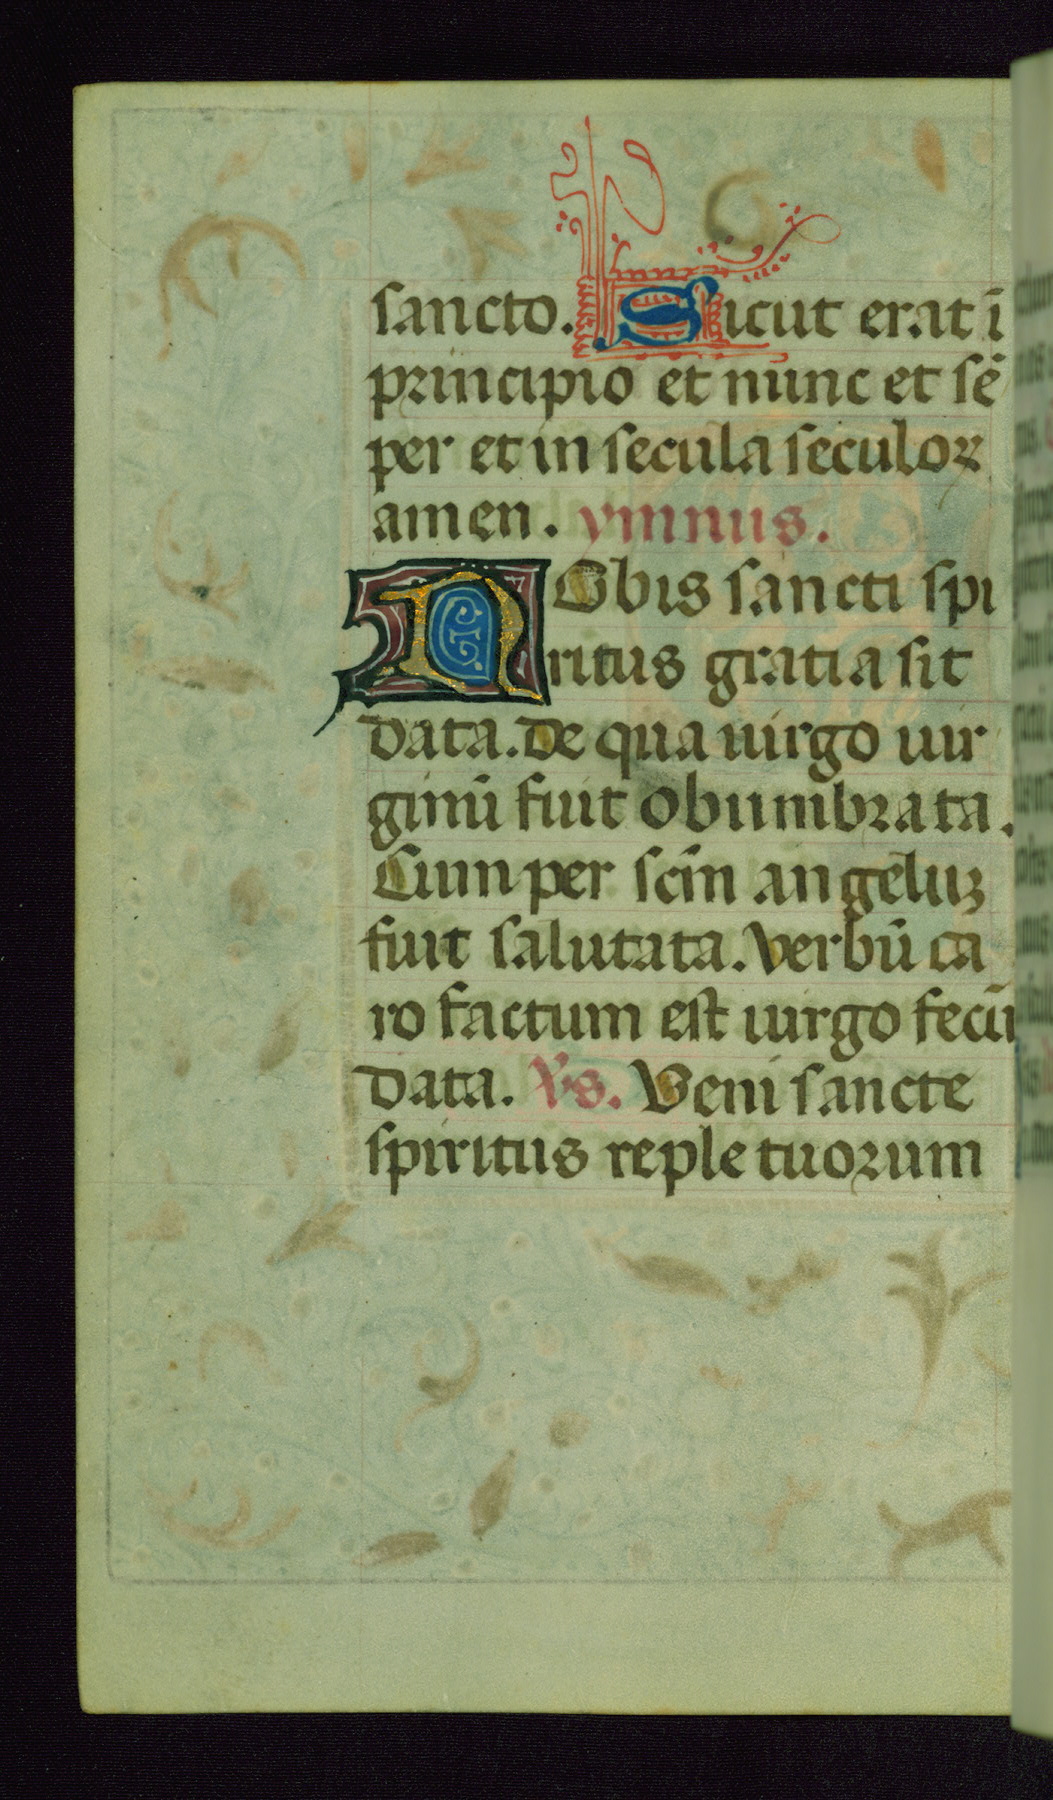 sancto. Sicut erat ī
principio et nunc et sē
per et in secula seculoꝝ
amen. ymnus.
NObis sancti spi
ritus gratia sit
data. De qua uirgo uir
ginū fuit obumbrata.
Cum per scm̄ angeluꝫ
fuit salutata. Verbū ca
ro factum est uirgo fecū
data. v̄s. Veni sancte
spiritus reple tuorum